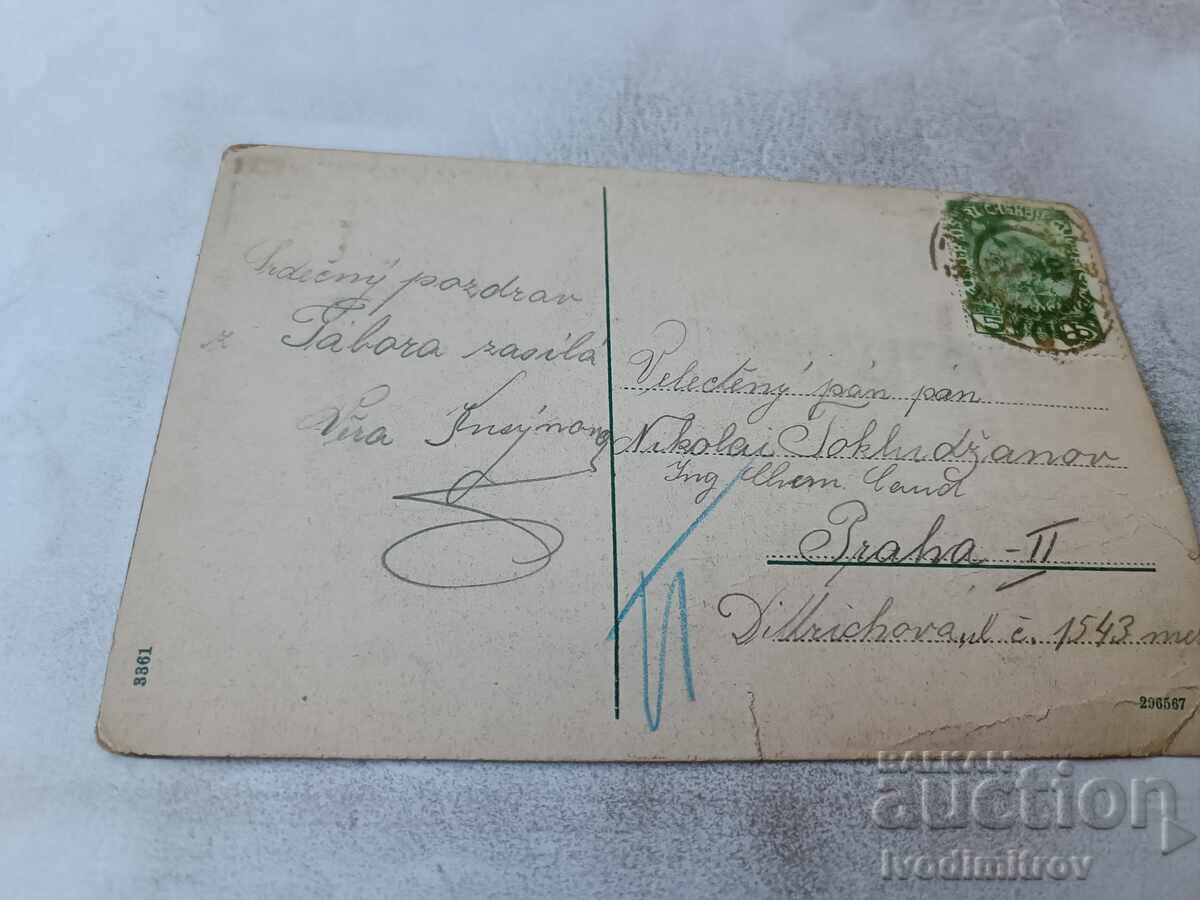 Srdečný pozdrav
z Tábora zasílá
Věra
Velectěný pán pán
Nikolai Tokludžanov
Ing Chem. Cand
Praha - II
Dittrichova ul č. 1543
3361
296567
5
BALKAN
auction
Ivodimitrov